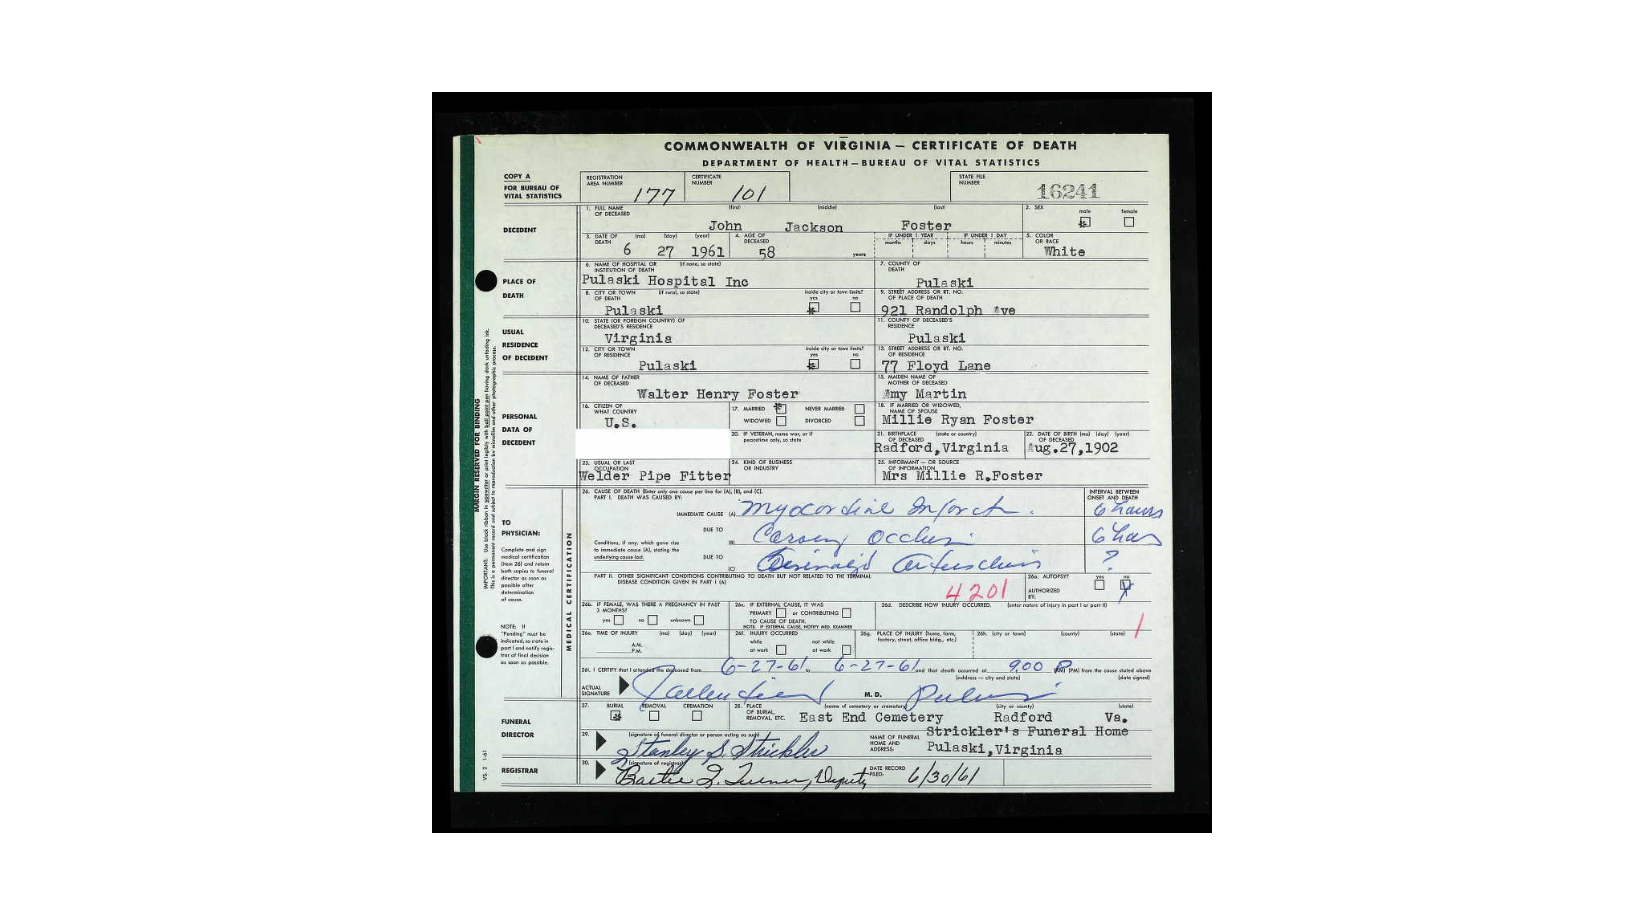 COMMONWEALTH OF VIRGINIA — CERTIFICATE OF DEATH
DEPARTMENT OF HEALTH — BUREAU OF VITAL STATISTICS
COPY A
FOR BUREAU OF
VITAL STATISTICS
REGISTRATION
AREA NUMBER 177
CERTIFICATE
NUMBER 101
STATE FILE
NUMBER 16241
DECEDENT
1. FULL NAME
OF DECEASED
(first) (middle) (last)
John Jackson Foster
2. SEX
male female
3. DATE OF
DEATH
(mo) (day) (year)
6 27 1961
4. AGE OF
DECEASED
58 years
IF UNDER 1 YEAR IF UNDER 1 DAY
months days hours minutes
5. COLOR
OR RACE
White
PLACE OF
DEATH
6. NAME OF HOSPITAL OR (if none, so state)
INSTITUTION OF DEATH
Pulaski Hospital Inc
7. COUNTY OF
DEATH
Pulaski
8. CITY OR TOWN (if rural, so state)
OF DEATH
Pulaski
inside city or town limits?
yes no
9. STREET ADDRESS OR RT. NO.
OF PLACE OF DEATH
921 Randolph Ave
USUAL
RESIDENCE
OF DECEDENT
10. STATE (OR FOREIGN COUNTRY) OF
DECEASED'S RESIDENCE
Virginia
11. COUNTY OF DECEASED'S
RESIDENCE
Pulaski
12. CITY OR TOWN
OF RESIDENCE
Pulaski
inside city or town limits?
yes no
13. STREET ADDRESS OR RT. NO.
OF RESIDENCE
77 Floyd Lane
PERSONAL
DATA OF
DECEDENT
14. NAME OF FATHER
OF DECEASED
Walter Henry Foster
15. MAIDEN NAME OF
MOTHER OF DECEASED
Amy Martin
16. CITIZEN OF
WHAT COUNTRY
U.S.
17. MARRIED NEVER MARRIED
WIDOWED DIVORCED
18. IF MARRIED OR WIDOWED,
NAME OF SPOUSE
Millie Ryan Foster
20. IF VETERAN, name war, or if
peacetime only, so state
21. BIRTHPLACE (state or country)
OF DECEASED
Radford,Virginia
22. DATE OF BIRTH (mo) (day) (year)
OF DECEASED
Aug.27,1902
23. USUAL OR LAST
OCCUPATION
Welder Pipe Fitter
24. KIND OF BUSINESS
OR INDUSTRY
25. INFORMANT — OR SOURCE
OF INFORMATION
Mrs Millie R.Foster
MARGIN RESERVED FOR BINDING
TO
PHYSICIAN:
Complete and sign
medical certification
(item 26) and return
both copies to funeral
director as soon as
possible after
determination
of cause.
NOTE: If
"Pending" must be
indicated, so note in
part I and notify regis-
trar of final decision
as soon as possible.
MEDICAL CERTIFICATION
26. CAUSE OF DEATH (Enter only one cause per line for (A), (B), and (C).
PART I. DEATH WAS CAUSED BY:
INTERVAL BETWEEN
ONSET AND DEATH
IMMEDIATE CAUSE (A) 6 hours
DUE TO
Conditions, if any, which gave rise
to immediate cause (A), stating the
underlying cause last.
(B)
DUE TO
(C) ?
PART II. OTHER SIGNIFICANT CONDITIONS CONTRIBUTING TO DEATH BUT NOT RELATED TO THE TERMINAL
DISEASE CONDITION GIVEN IN PART I (A)
4201
26a. AUTOPSY? yes no
AUTHORIZED
BY:
26b. IF FEMALE, WAS THERE A PREGNANCY IN PAST
3 MONTHS?
yes no unknown
26c. IF EXTERNAL CAUSE, IT WAS
PRIMARY or CONTRIBUTING
TO CAUSE OF DEATH.
NOTE: IF EXTERNAL CAUSE, NOTIFY MED. EXAMINER
26d. DESCRIBE HOW INJURY OCCURRED. (enter nature of injury in part I or part II)
26e. TIME OF INJURY (mo) (day) (year)
A.M.
P.M.
26f. INJURY OCCURRED
while not while
at work at work
26g. PLACE OF INJURY (home, farm,
factory, street, office bldg., etc.)
26h. (city or town) (county) (state)
26i. I CERTIFY that I attended the deceased from 6-27-61 to 6-27-61 and that death occurred at 9.00 P (PM) from the cause stated above
(address — city and state) (date signed)
ACTUAL
SIGNATURE
M. D.
FUNERAL
DIRECTOR
27. BURIAL REMOVAL CREMATION
28. PLACE
OF BURIAL,
REMOVAL, ETC.
(name of cemetery or crematory) (city or county) (state)
East End Cemetery Radford Va.
29. (signature of funeral director or person acting as such)
Stanley S. Strickler
NAME OF FUNERAL
HOME AND
ADDRESS:
Strickler's Funeral Home
Pulaski,Virginia
REGISTRAR
30. (signature of registrar)
Turner, Deputy
DATE RECORD
FILED: 6/30/61
VS. 2 1-61